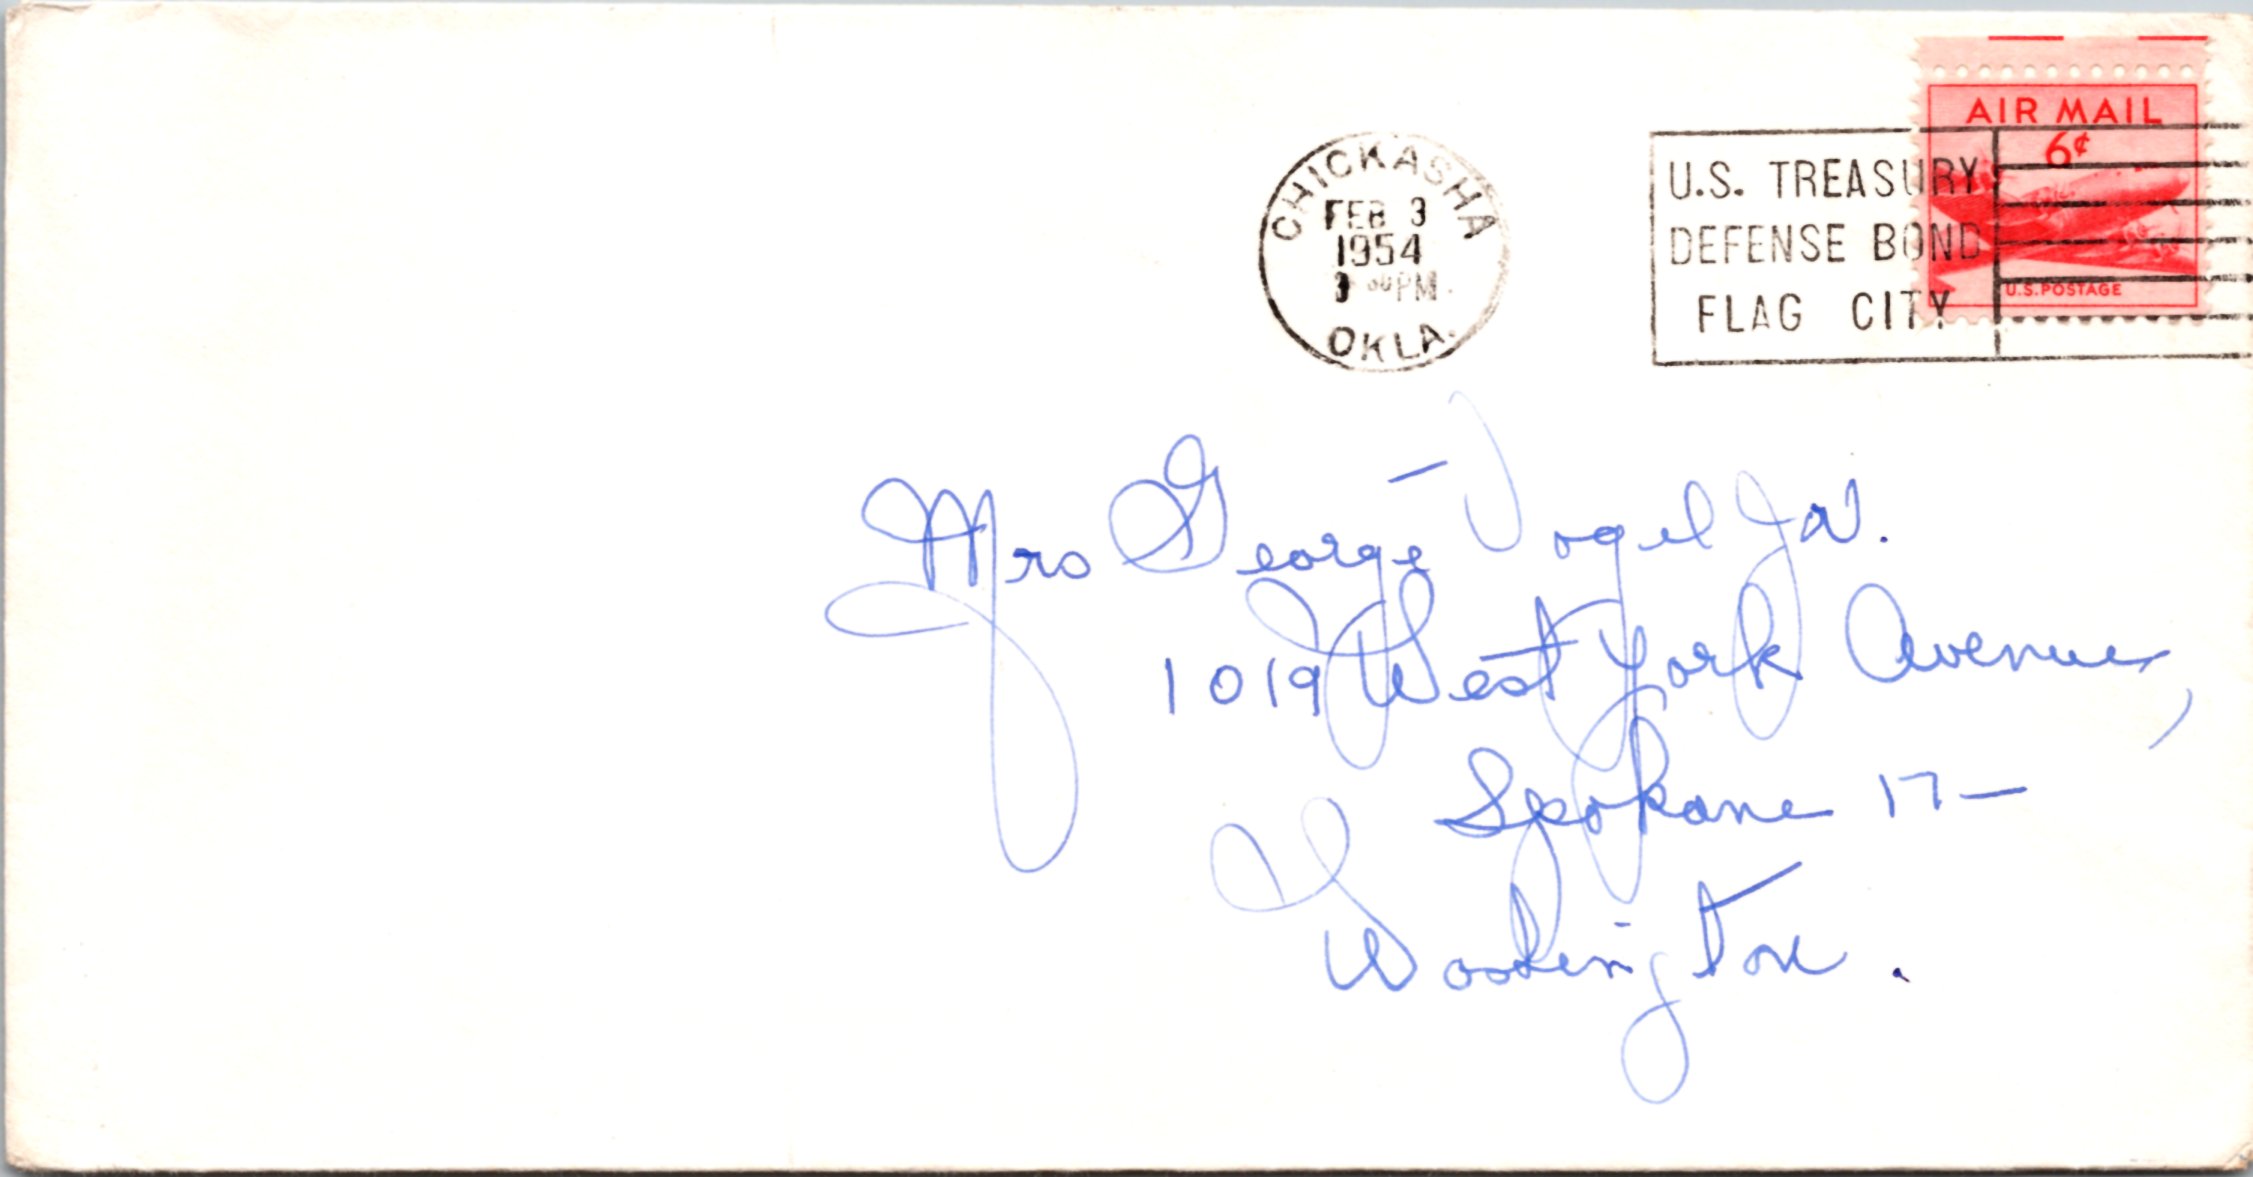 AIR MAIL
6¢
U.S. POSTAGE
CHICKASHA
FEB 3
1954
PM
OKLA.
U.S. TREASURY
DEFENSE BOND
FLAG CITY
Mrs George Vogel Jr.
1019 West York Avenue,
Spokane 17—
Washington.